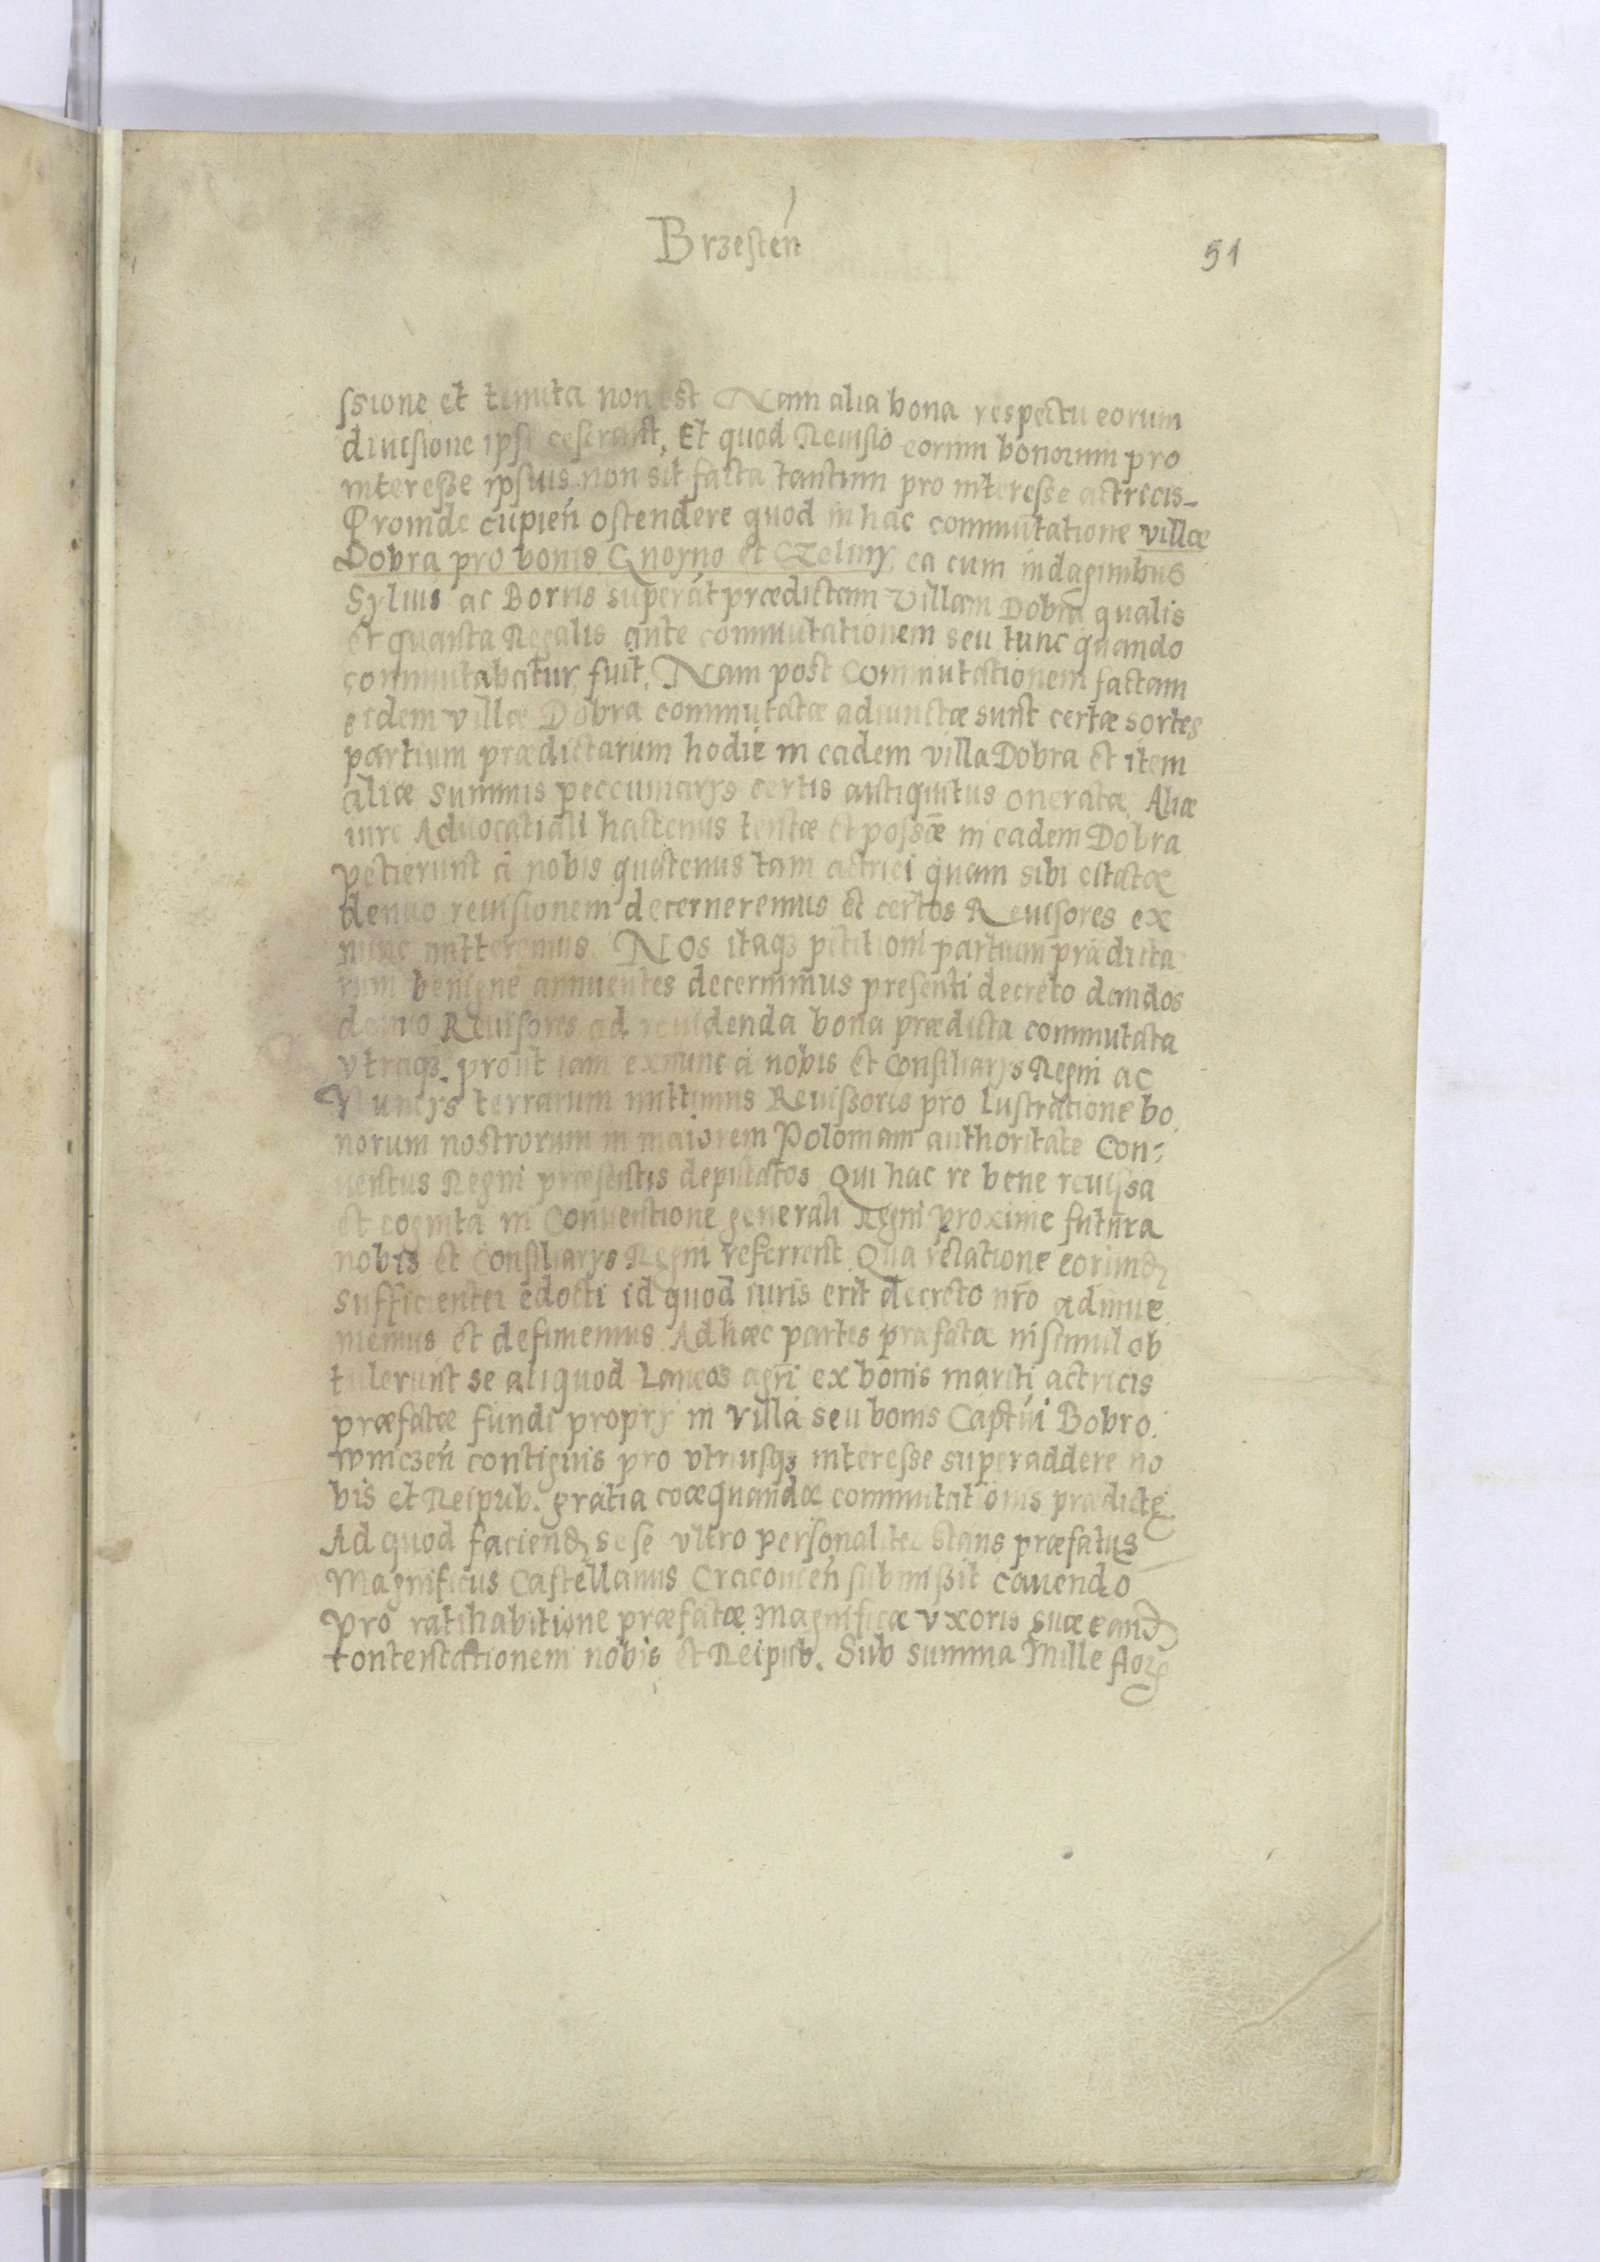 Brzesteń
51
ssione et tenuta non est Nam alia bona respectu eorum
diuisione ipsi cesserant, Et quod Reuisio eorum bonorum pro
interesse ipsius non sit facta tantum pro interesse actricis
Proinde cupień ostendere quod in hac commutatione villæ
Dobra pro bonis Gnoyno et ea cum indaginibus
Syluis ac Borris superat prædictam Villam Dobra qualis
et quanta Regalis ante commutationem seu tunc quando
commutabatur fuit, Nam post Commutationem factam
eidem villæ Dobra commutatæ adiunctæ sunt certæ sortes
partium prædictarum hodie in eadem villa Dobra et item
aliæ summis peccuniarys certis antiquitus oneratæ, Aliæ
iure Aduocatiali hactenus tentæ et possæ in eadem Dobra
petierunt a nobis quatenus tam actrici quam sibi citatæ
denuo reuisionem decerneremus et certos Reuisores ex
nunc mitteremus. Nos itaqz petitioni partium prædicta
rum benigne annuentes decernimus presenti decreto dandos
denuo Reuisores ad reuidenda bona prædicta commutata
vtraqz. prout iam exnunc a nobis et Consiliarys Regni ac
Nuncys terrarum mittimus Reuissoris pro lustratione bo
norum nostrorum in maiorem Poloniam authoritate Con:
uentus Regni præsentis deputatos Qui hac re bene reuissa
et cognita in Conuentione generali Regni proxime futura
nobis et Consiliarys Regni referrent Qua relatione eorund
sufficienter edocti id quod iuris erit decreto nro adinue
niemus et definiemus Ad hæc partes præfatæ insimul ob
tulerunt se aliquod Laneos agri ex bonis mariti actricis
præfatæ fundi propry in villa seu bonis Captui Bobro.
wniczeń contiguis pro vtriusqz interesse superaddere no
bis et Reipub. gratia coæquandæ commutationis prædictę
Ad quod faciend sese vltro personaliter stans præfatus
Magnificus Castellanus Cracouień submissit cauendo
pro ratihabitione præfatæ Magnificæ vxoris suæ eand
contentationem nobis et Reipub. Sub summa Mille flor